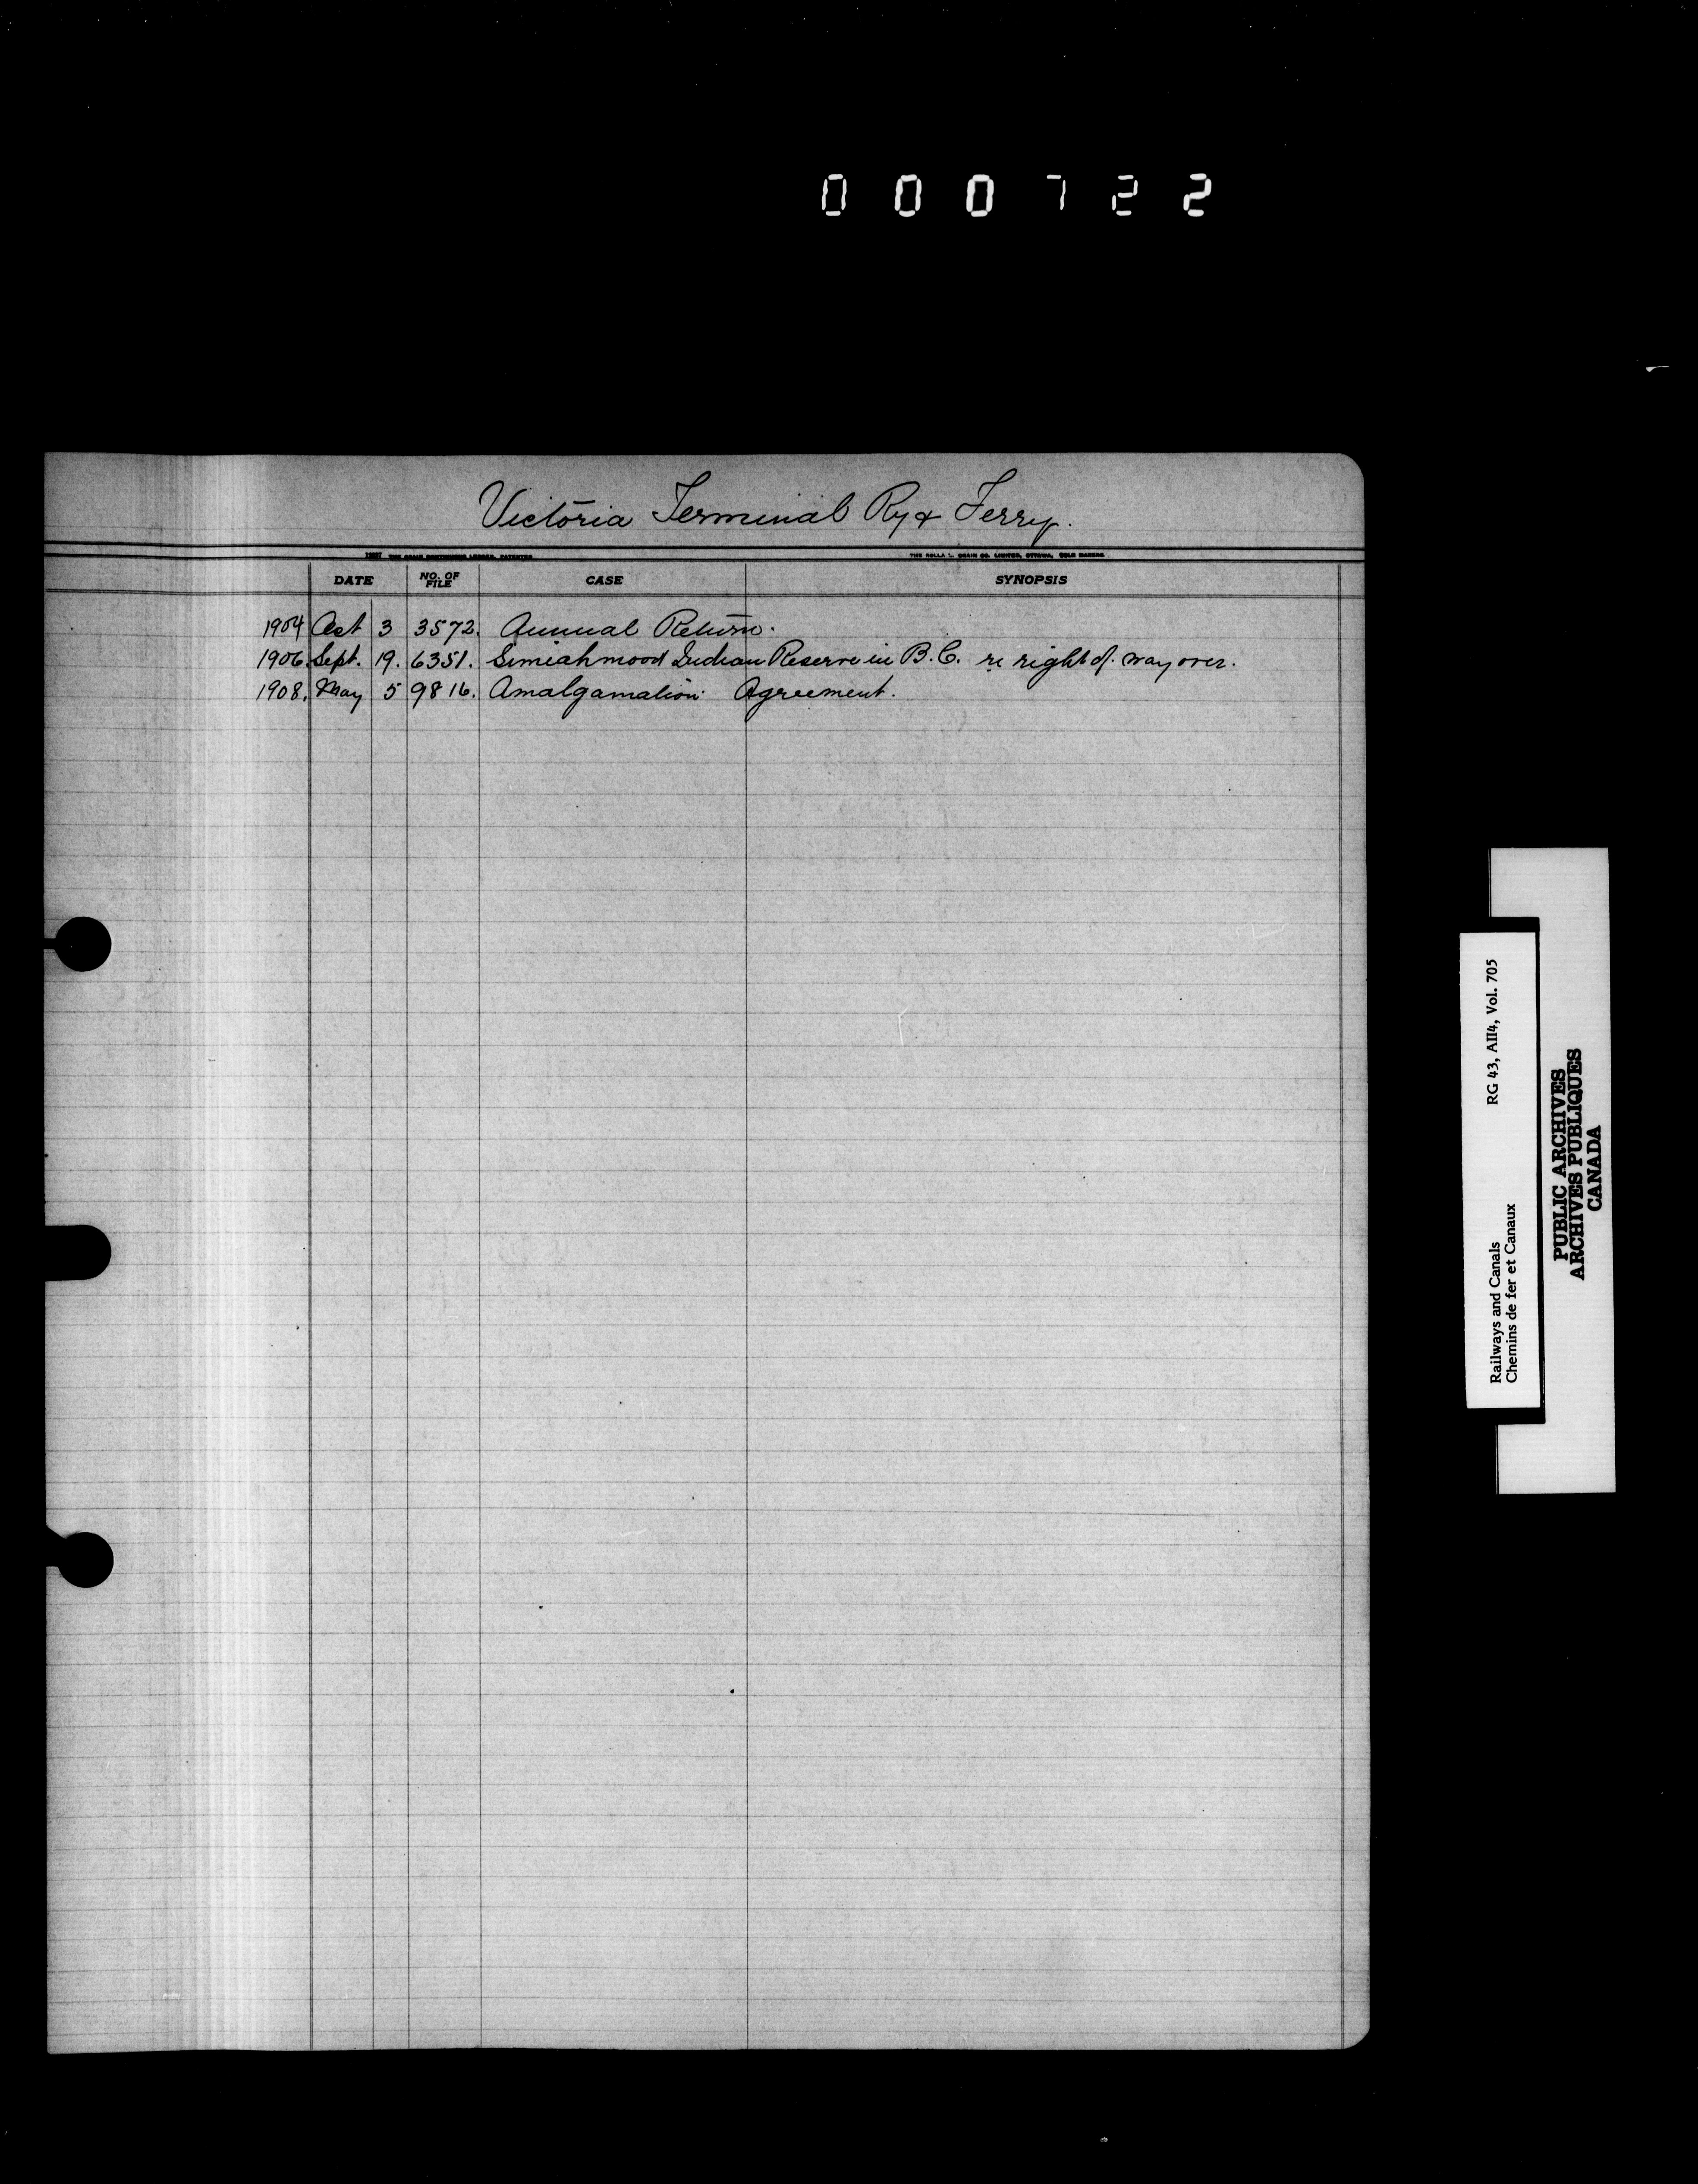 000722
Victoria Terminal Ry & Ferry.
THE CRAIN CONTINUOUS LEDGER, PATENTED
THE ROLLA L. CRAIN CO. LIMITED, OTTAWA, SOLE MAKERS
DATE NO. OF FILE CASE SYNOPSIS
1904 Oct 3 3572. Annual Return.
1906. Sept. 19. 6351. Simiahmood Indian Reserve in B.C. re right of way over.
1908. May 5 9816. Amalgamation Agreement.
Railways and Canals RG 43, AII4, Vol. 705
Chemins de fer et Canaux
PUBLIC ARCHIVES
ARCHIVES PUBLIQUES
CANADA